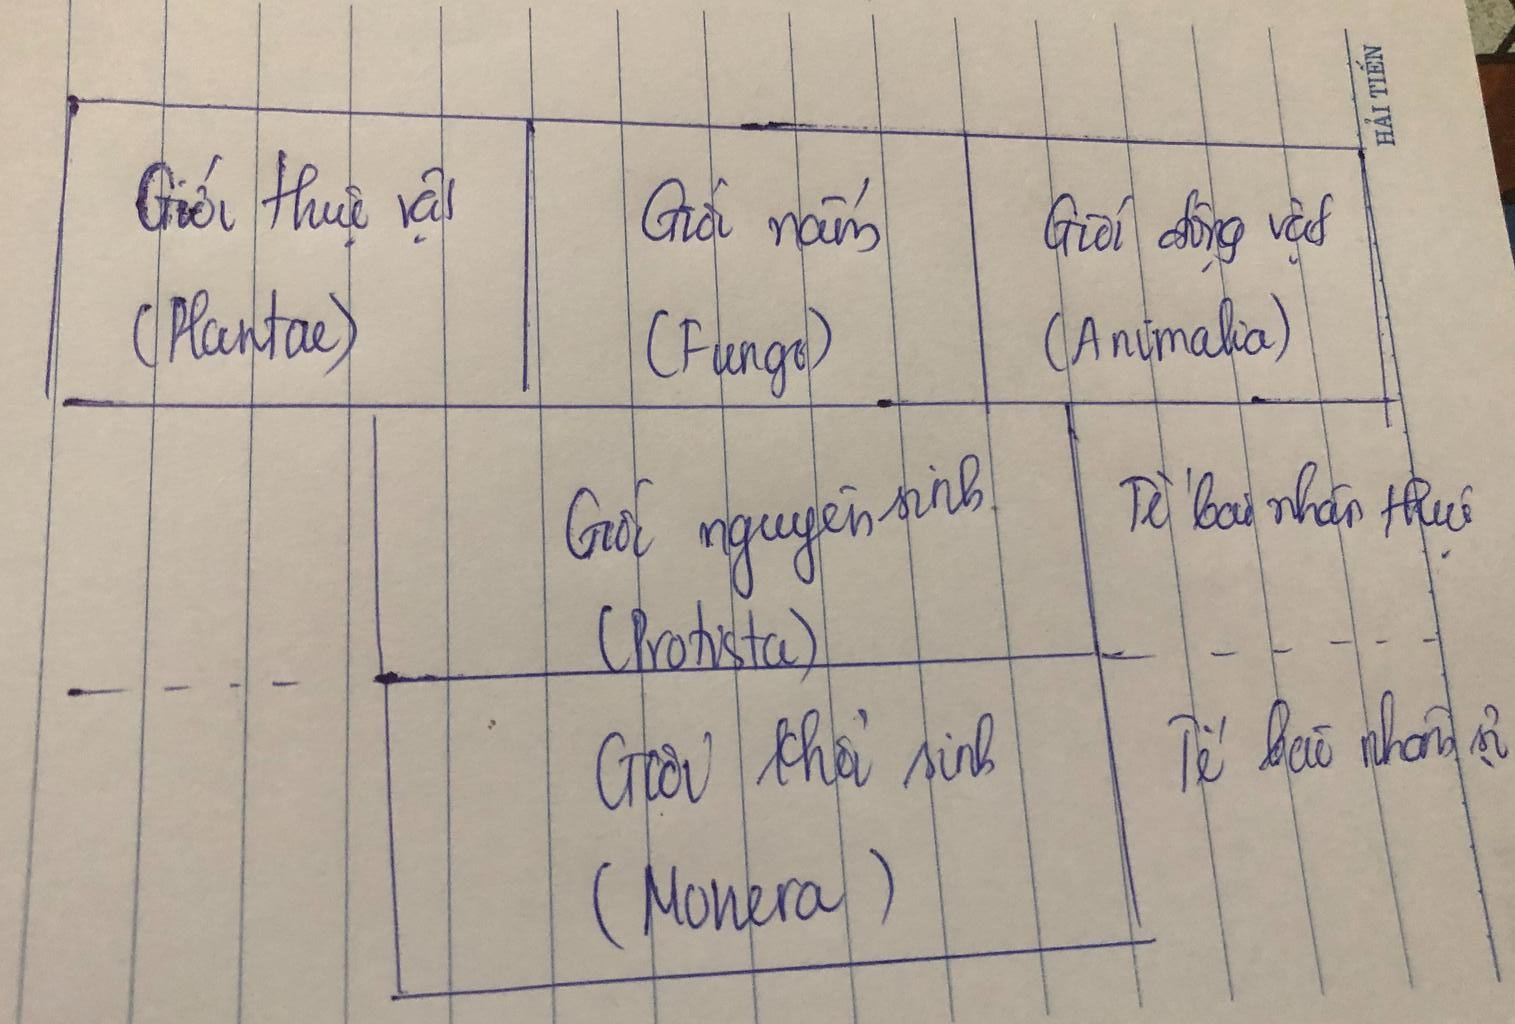 HẢI TIẾN
Giới thực vật
(Plantae)
Giới nấm
(Fungi)
Giới động vật
(Animalia)
Giới nguyên sinh
(Protista)
Tế bào nhân thực
Giới khởi sinh
(Monera)
Tế bào nhân sơ